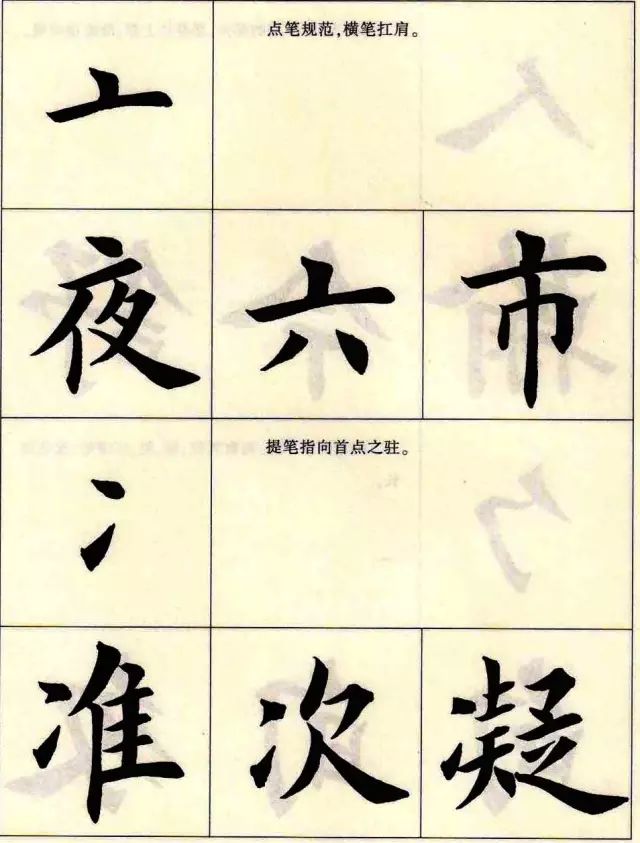 亠 点笔规范，横笔扛肩。
夜 六 市
冫 提笔指向首点之驻。
准 次 凝